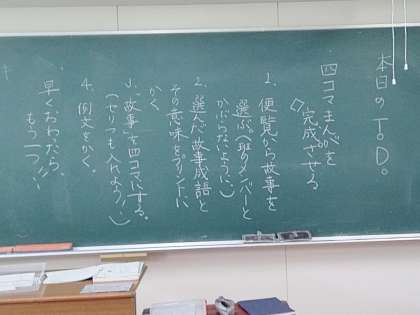 本日のT.O.D.
四コマまんがを
完成させる
1. 便覧から故事を
選ぶ。(班のメンバーと
かぶらないように。)
2. 選んだ故事成語と
その意味をプリントに
かく。
3. 「故事」を四コマにする。
(セリフも入れよう!)
4. 例文をかく。
早くおわたら、
もう一つ!!